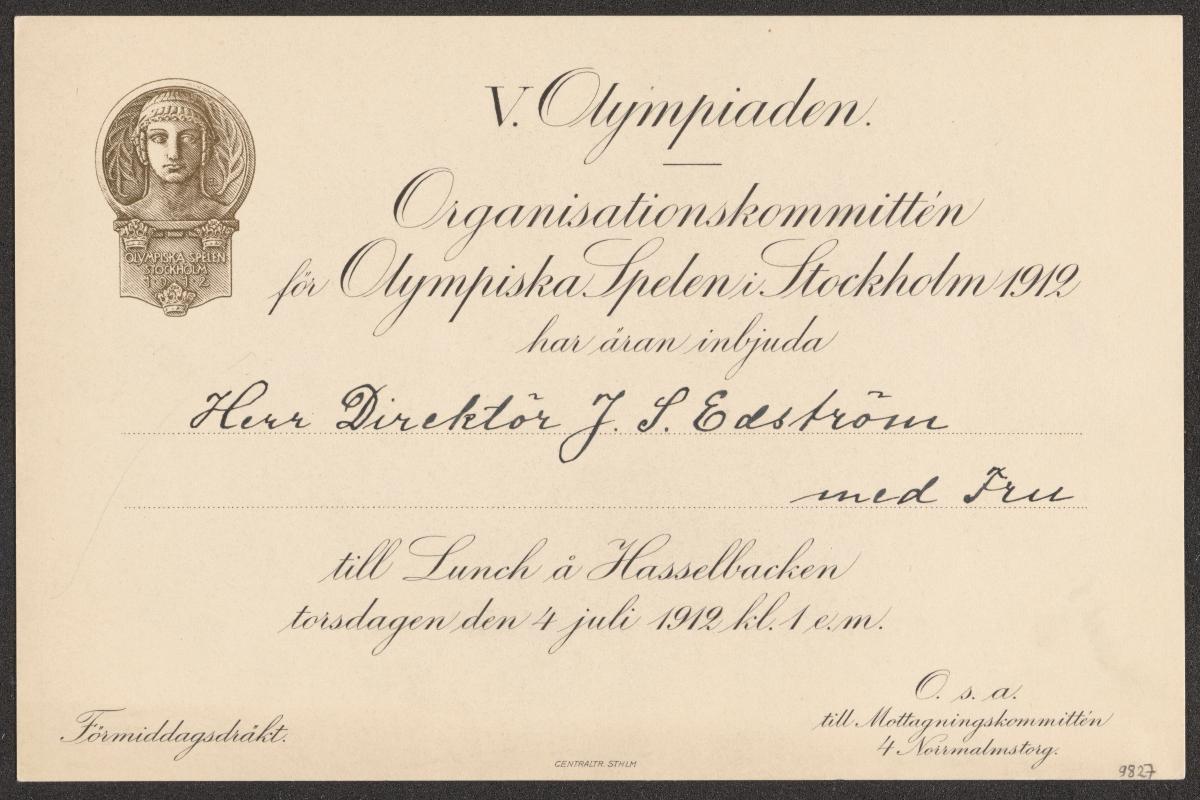 V. Olympiaden.
Organisationskommittén
för Olympiska Spelen i Stockholm 1912
har äran inbjuda
Herr Direktör J. S. Edström
med Fru
till Lunch å Hasselbacken
torsdagen den 4 juli 1912 kl. 1 e. m.
OLYMPISKA SPELEN
STOCKHOLM
1912
Förmiddagsdräkt.
O. s. a.
till Mottagningskommittén
4 Norrmalmstorg.
CENTRALTR. STHLM
9827